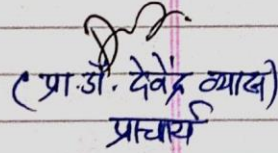 (प्रा.डॉ. देवेंद्र व्यास)
प्राचार्य